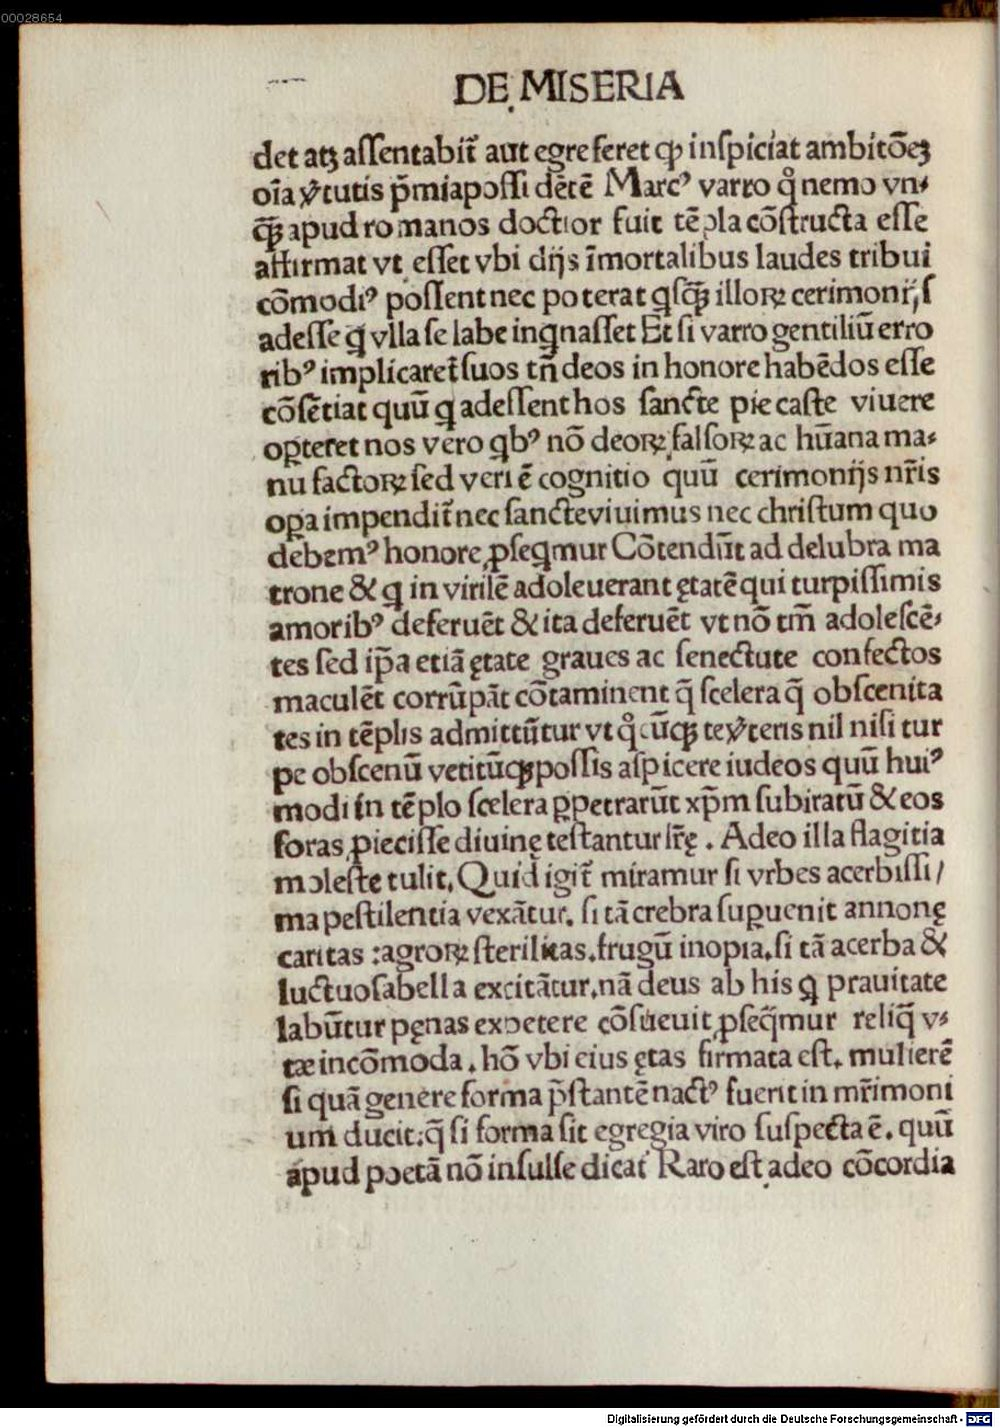 00028654
DE MISERIA
det atꝫ aſſentabit̃ aut egre feret ꝙ inſpiciat ambitõeꝫ
oĩa v̾tutis p̃mia poſſidẽtẽ Marcꝰ varro q̊ nemo vn⸗
q̃ꝫ apud romanos doctior fuit tẽpla cõſtructa eſſe
affirmat vt eſſet vbi dijs ĩmortalibus laudes tribui
cõmodiꝰ poſſent nec poterat qſq̃ꝫ illoꝝ cerimonijſ
adeſſe q vlla ſe labe inqnaſſet Et ſi varro gentiliũ erro
ribꝰ implicaret̃ ſuos tñ deos in honore habẽdos eſſe
cõſẽtiat quũ q adeſſent hos ſancte pie caſte viuere
oꝑteret nos vero qbꝰ nõ deoꝝ falſoꝝ ac hũana ma⸗
nu factoꝝ ſed veri ẽ cognitio quũ cerimonijs nr̃is
oꝑa impendit̃ nec ſancte viuimus nec chriſtum quo
debemꝰ honore ꝓſeqmur Cõtendũt ad delubra ma
trone & q in virilẽ adoleuerant ętatẽ qui turpiſſimis
amoribꝰ deferuẽt & ita deferuẽt vt nõ tm̃ adoleſcẽ⸗
tes ſed ip̃a etiã ętate graues ac ſenectute confectos
maculẽt corrũpãt cõtaminent q̃ ſcelera q̃ obſcenita
tes in tẽplis admittũtur vt q̊cũqꝫ te v̾teris nil niſi tur
pe obſcenũ vetitũqꝫ poſſis aſpicere iudeos quũ huiꝰ
modi in tẽplo ſcelera ꝑpetrarũt xp̃m ſubiratũ & eos
foras ꝓieciſſe diuinę teſtantur lr̃ę . Adeo illa flagitia
moleſte tulit. Quid igit̃ miramur ſi vrbes acerbiſſi/
ma peſtilentia vexãtur. ſi tã crebra ſuꝑuenit annonę
caritas : agroꝝ ſterilitas. frugũ inopia. ſi tã acerba &
luctuoſa bella excitãtur. nã deus ab his q prauitate
labũtur pęnas expetere cõſueuit ꝓſeq̃mur reliq̃ v⸗
tæ incõmoda . hõ vbi eius ętas firmata eſt . mulierẽ
ſi quã genere forma p̃ſtantẽ nactꝰ fuerit in mr̃imoni
um ducit: q̃ ſi forma ſit egregia viro ſuſpecta ẽ . quũ
apud poetã nõ inſulſe dicat̃ Raro eſt adeo cõcordia
Digitalisierung gefördert durch die Deutsche Forschungsgemeinschaft - DFG